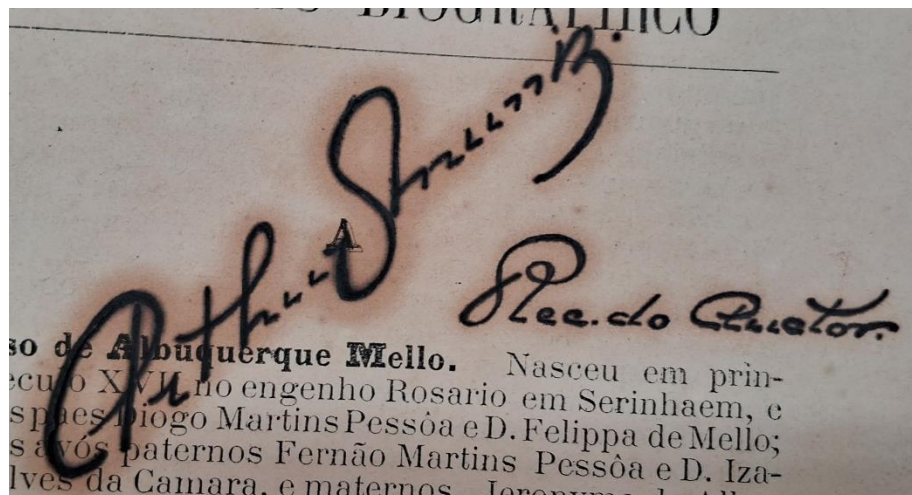 BIOGRAPHICO
Arthur
A
Rec. do Auctor.
so de Albuquerque Mello. Nasceu em prin-
eculo XVII no engenho Rosario em Serinhaem, e
s paes Diogo Martins Pessôa e D. Felippa de Mello;
s avós paternos Fernão Martins Pessôa e D. Iza-
lves da Camara, e maternos Jeronymo de